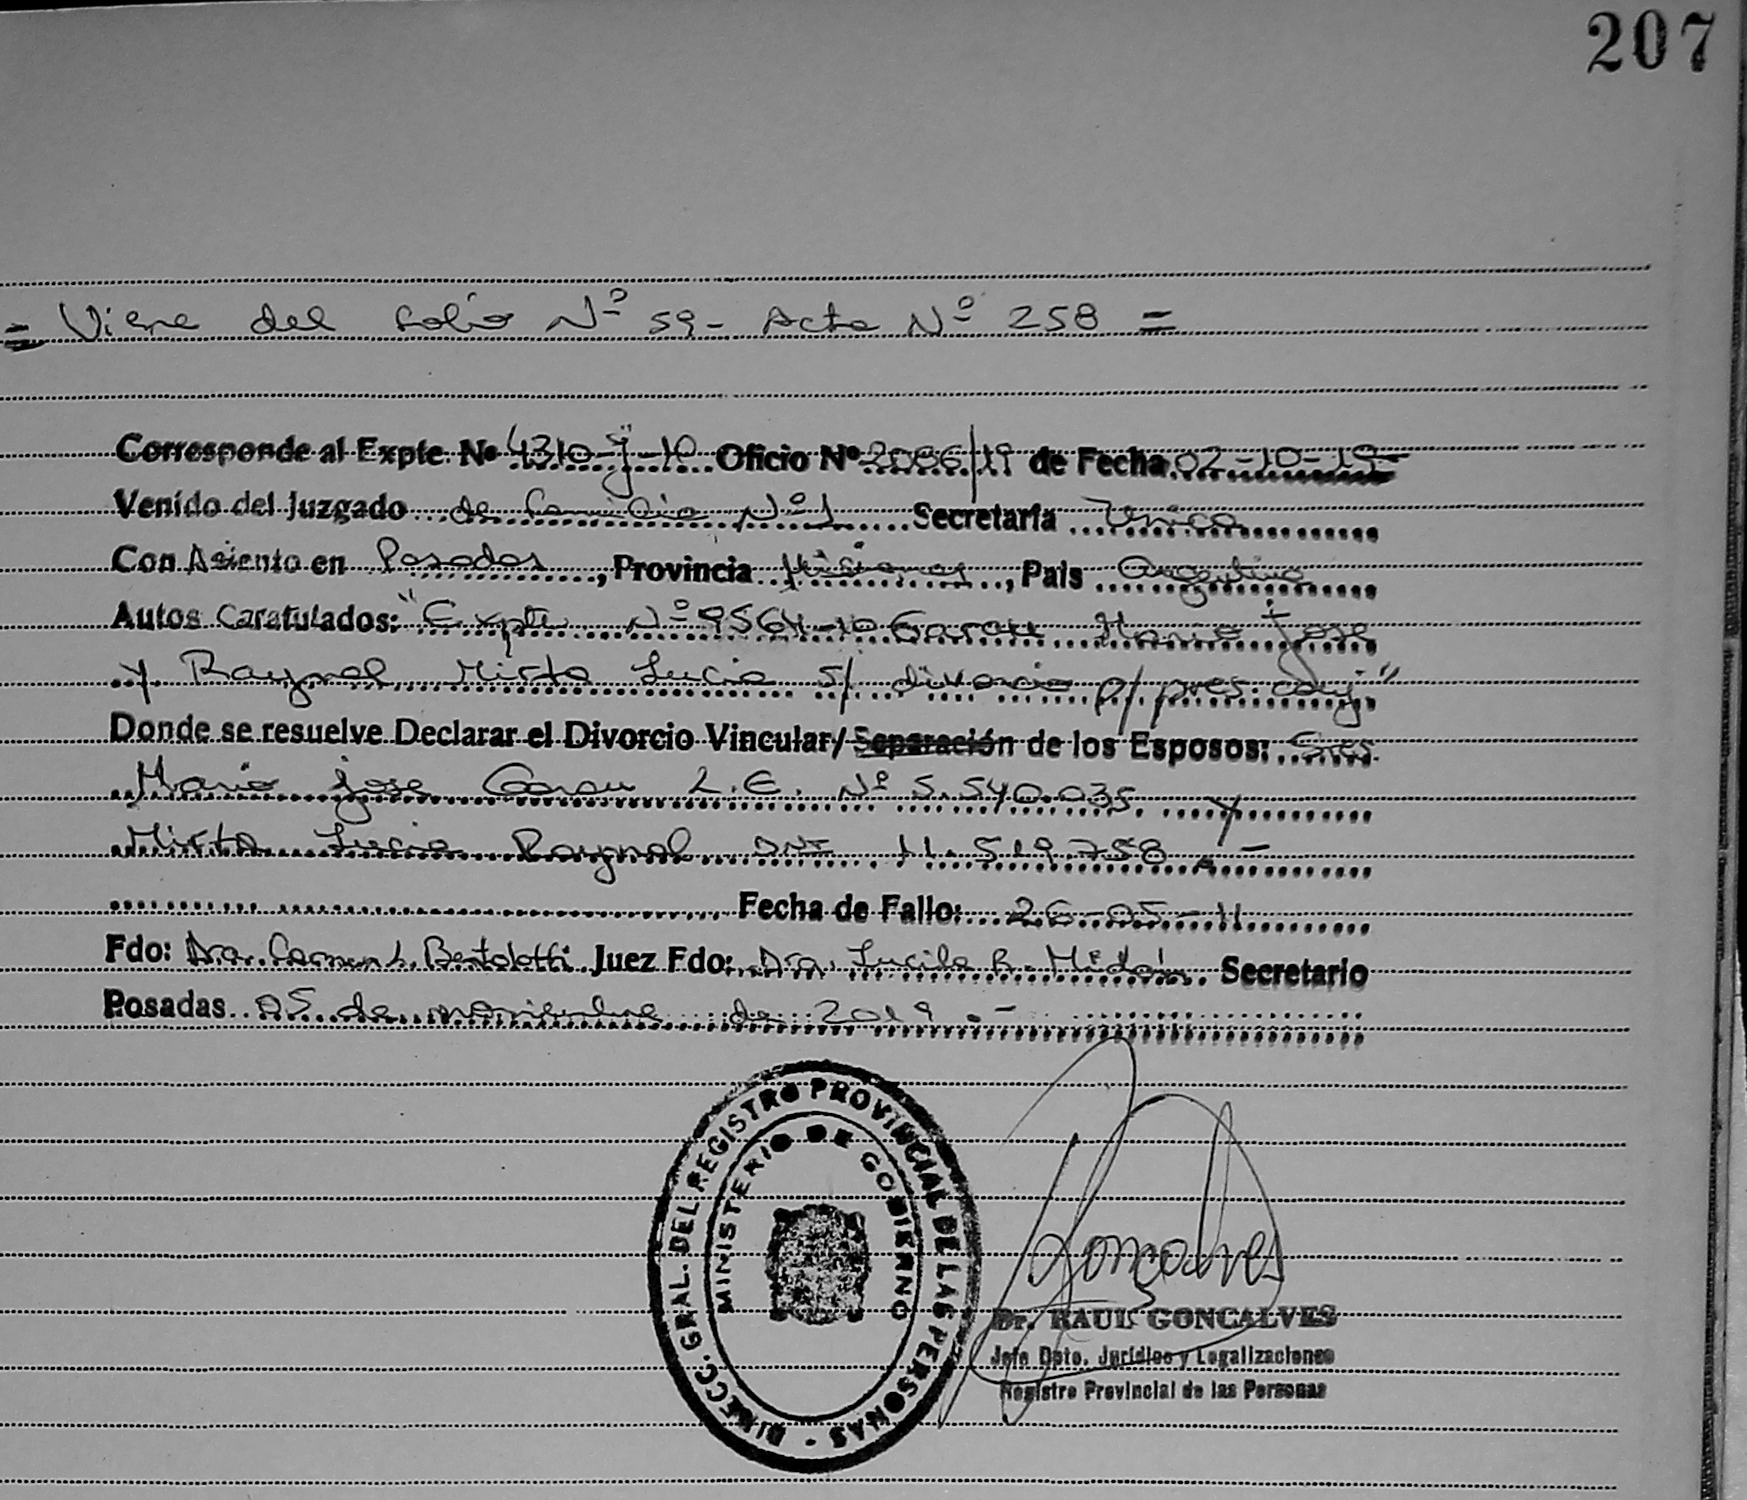 207
= Viene del folio Nº 59- Acta Nº 258 =
Corresponde al Expte. Nº 4310-J-10 Oficio Nº 2086/19 de Fecha 02-10-19-
Venido del Juzgado de Familia Nº 1 Secretaría Unica
Con Asiento en Posadas, Provincia Misiones, Pais Argentina
Autos Caratulados: "Expte Nº 9564-10 Garau Mario Jose
y Raynal Mirta Lucia s/ divorcio p/ pres. conj."
Donde se resuelve Declarar el Divorcio Vincular/ Separación de los Esposos: Sres
Mario jose Garau L.E. Nº 5.540.035. y
Mirta Lucia Raynal DNI 11.519.758.-
Fecha de Fallo: 26-05-11
Fdo: Dra. Carmen L. Bertolotti Juez Fdo: Dra. Lucila R. Midón. Secretario
Posadas 05 de noviembre de 2019.-
DIRECC. GRAL. DEL REGISTRO PROVINCIAL DE LAS PERSONAS -
MINISTERIO DE GOBIERNO
Goncalves
Dr. RAUL GONCALVES
Jefe Dpto. Jurídico y Legalizaciones
Registro Provincial de las Personas